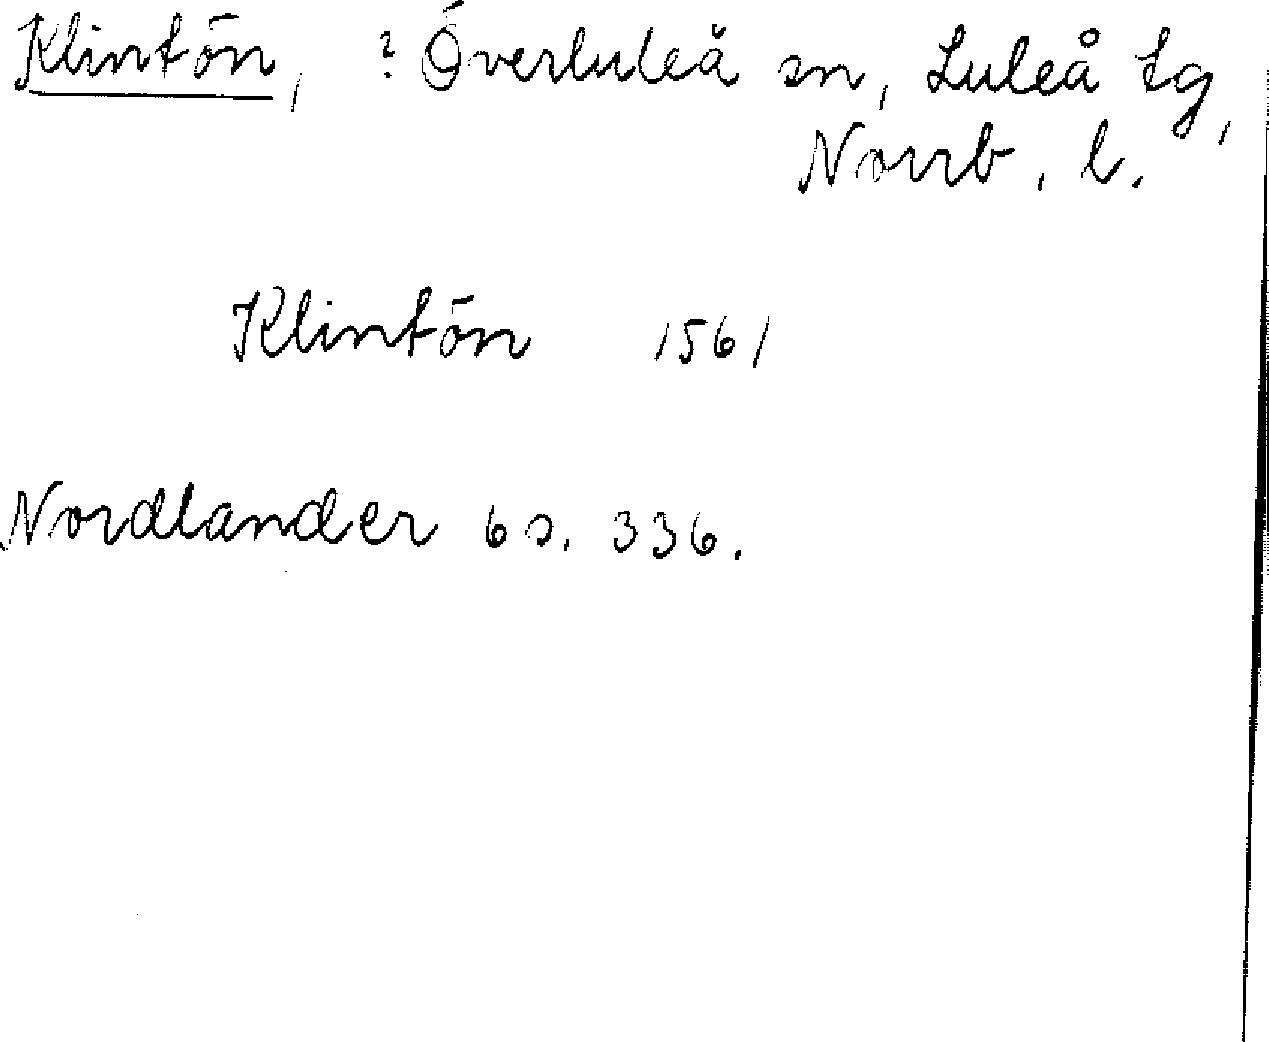 Klintön, ? Överluleå sn, Luleå tg,
Norrb. l.
Klintön 1561
Nordlander 6 s. 336.